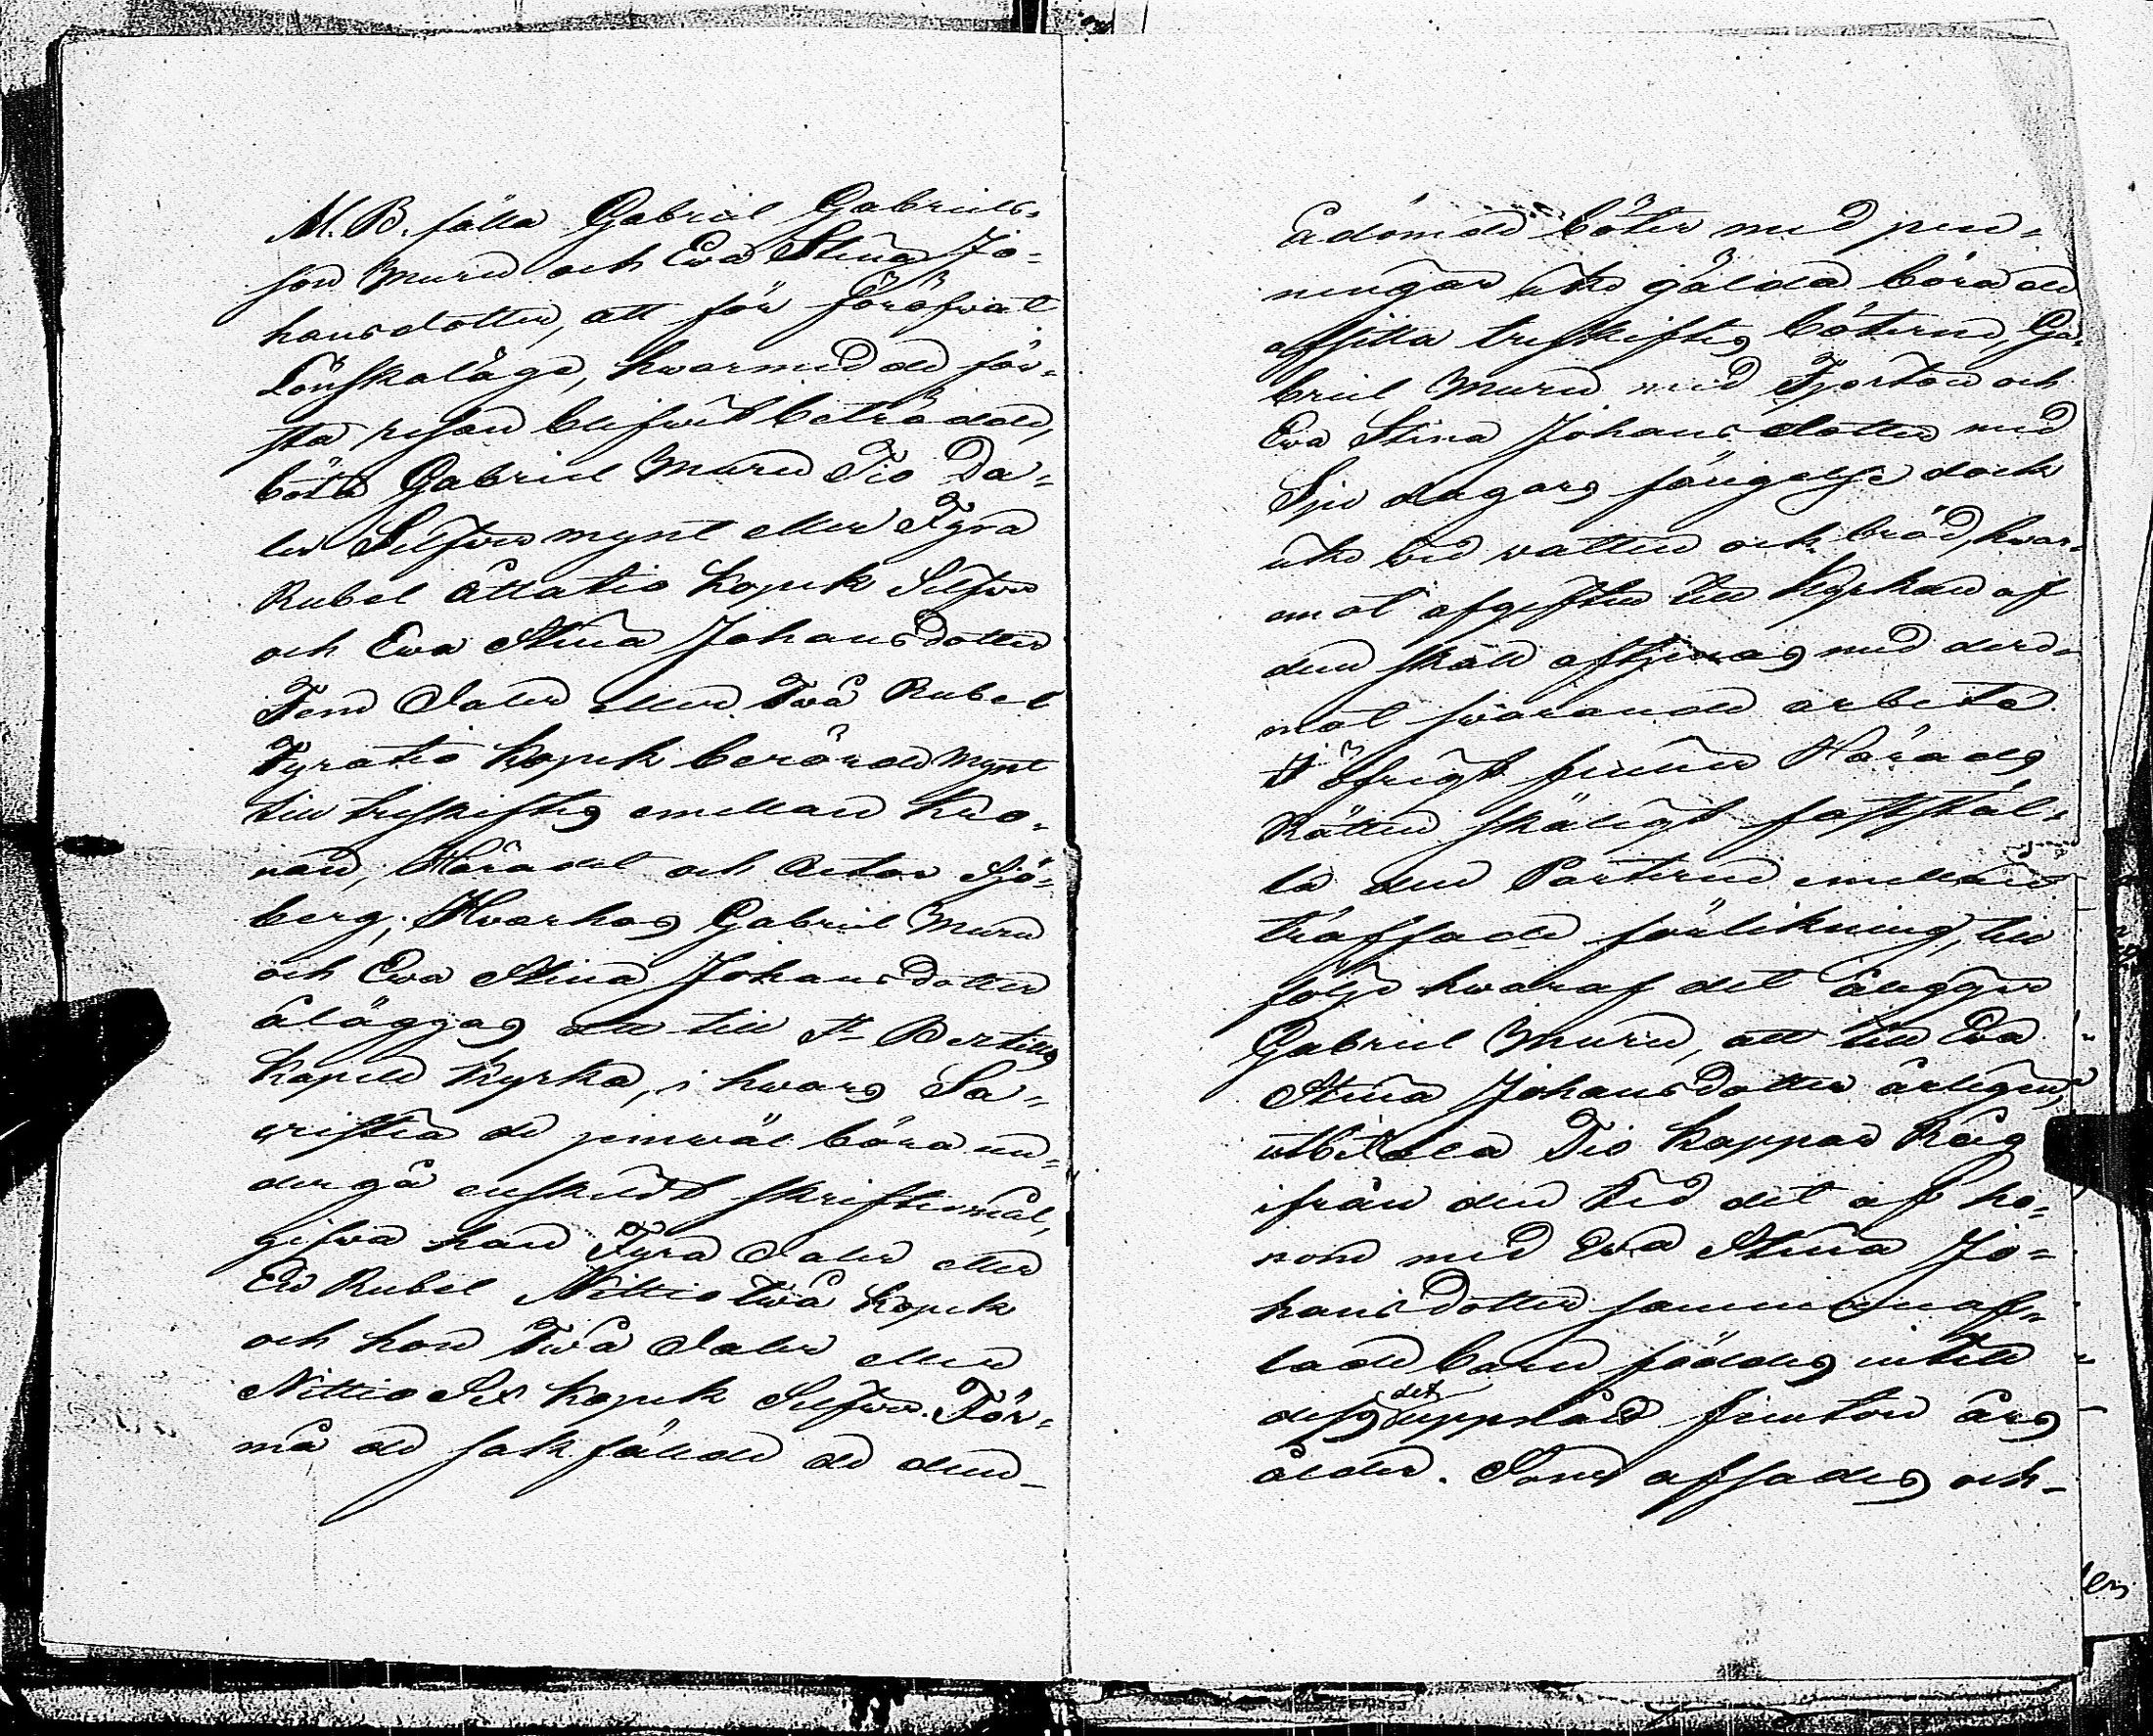 M. B. fälla Gabriel Gabriels-
son Muren och Eva Stina Jo-
hansdotter, att för föröfvat
Lönskaläge, hvarmed de för-
sta resan blifvit beträdde,
böta Gabriel Muren Tio Da-
ler Silfvermynt eller Fyra
Rubel Åttatio kopek Silfver
och Eva Stina Johansdotter
Fem Daler eller Två Rubel
Fyratio kopek berörde mynt
till treskiftes emellan Kro-
nan, Häradet och Actor Sjö-
berg; Hvarhos Gabriel Muren
och Eva Stina Johansdotter
åläggas att till St Bertills
Kapell Kyrka, i hvars Sa-
cristia de jemväl böra un-
dergå enskildt skriftermål,
gifva han Fyra Daler eller
En Rubel Nittio två kopek
och hon Två Daler eller
Nittio Sex kopek Silfver. För-
må de sakfällde de dem
ådömde böter med pen-
ningar icke gälda böra de
afsitta treskiftes böterne, Ga-
briel Muren med Fjorton och
Eva Stina Johansdotter med
Sju dagars fängelse dock
icke vid vatten och bröd, hvar-
emot afgiften till Kyrkan af
dem skall aftjenas med der-
mot svarande arbete.
I öfrigt finner Härads
Rätten skäligt fastställ-
la den Parterne emellan
träffade förlikning, till
följe hvaraf det åligger
Gabriel Muren, att till Eva
Stina Johansdotter årligen
utbetala Tio kappar Råg
ifrån den tid det af ho-
nom med Eva Stina Jo-
hansdotter sammanaf-
lade barn föddes intill
dess det uppnått femton års
ålder. Som afsades och